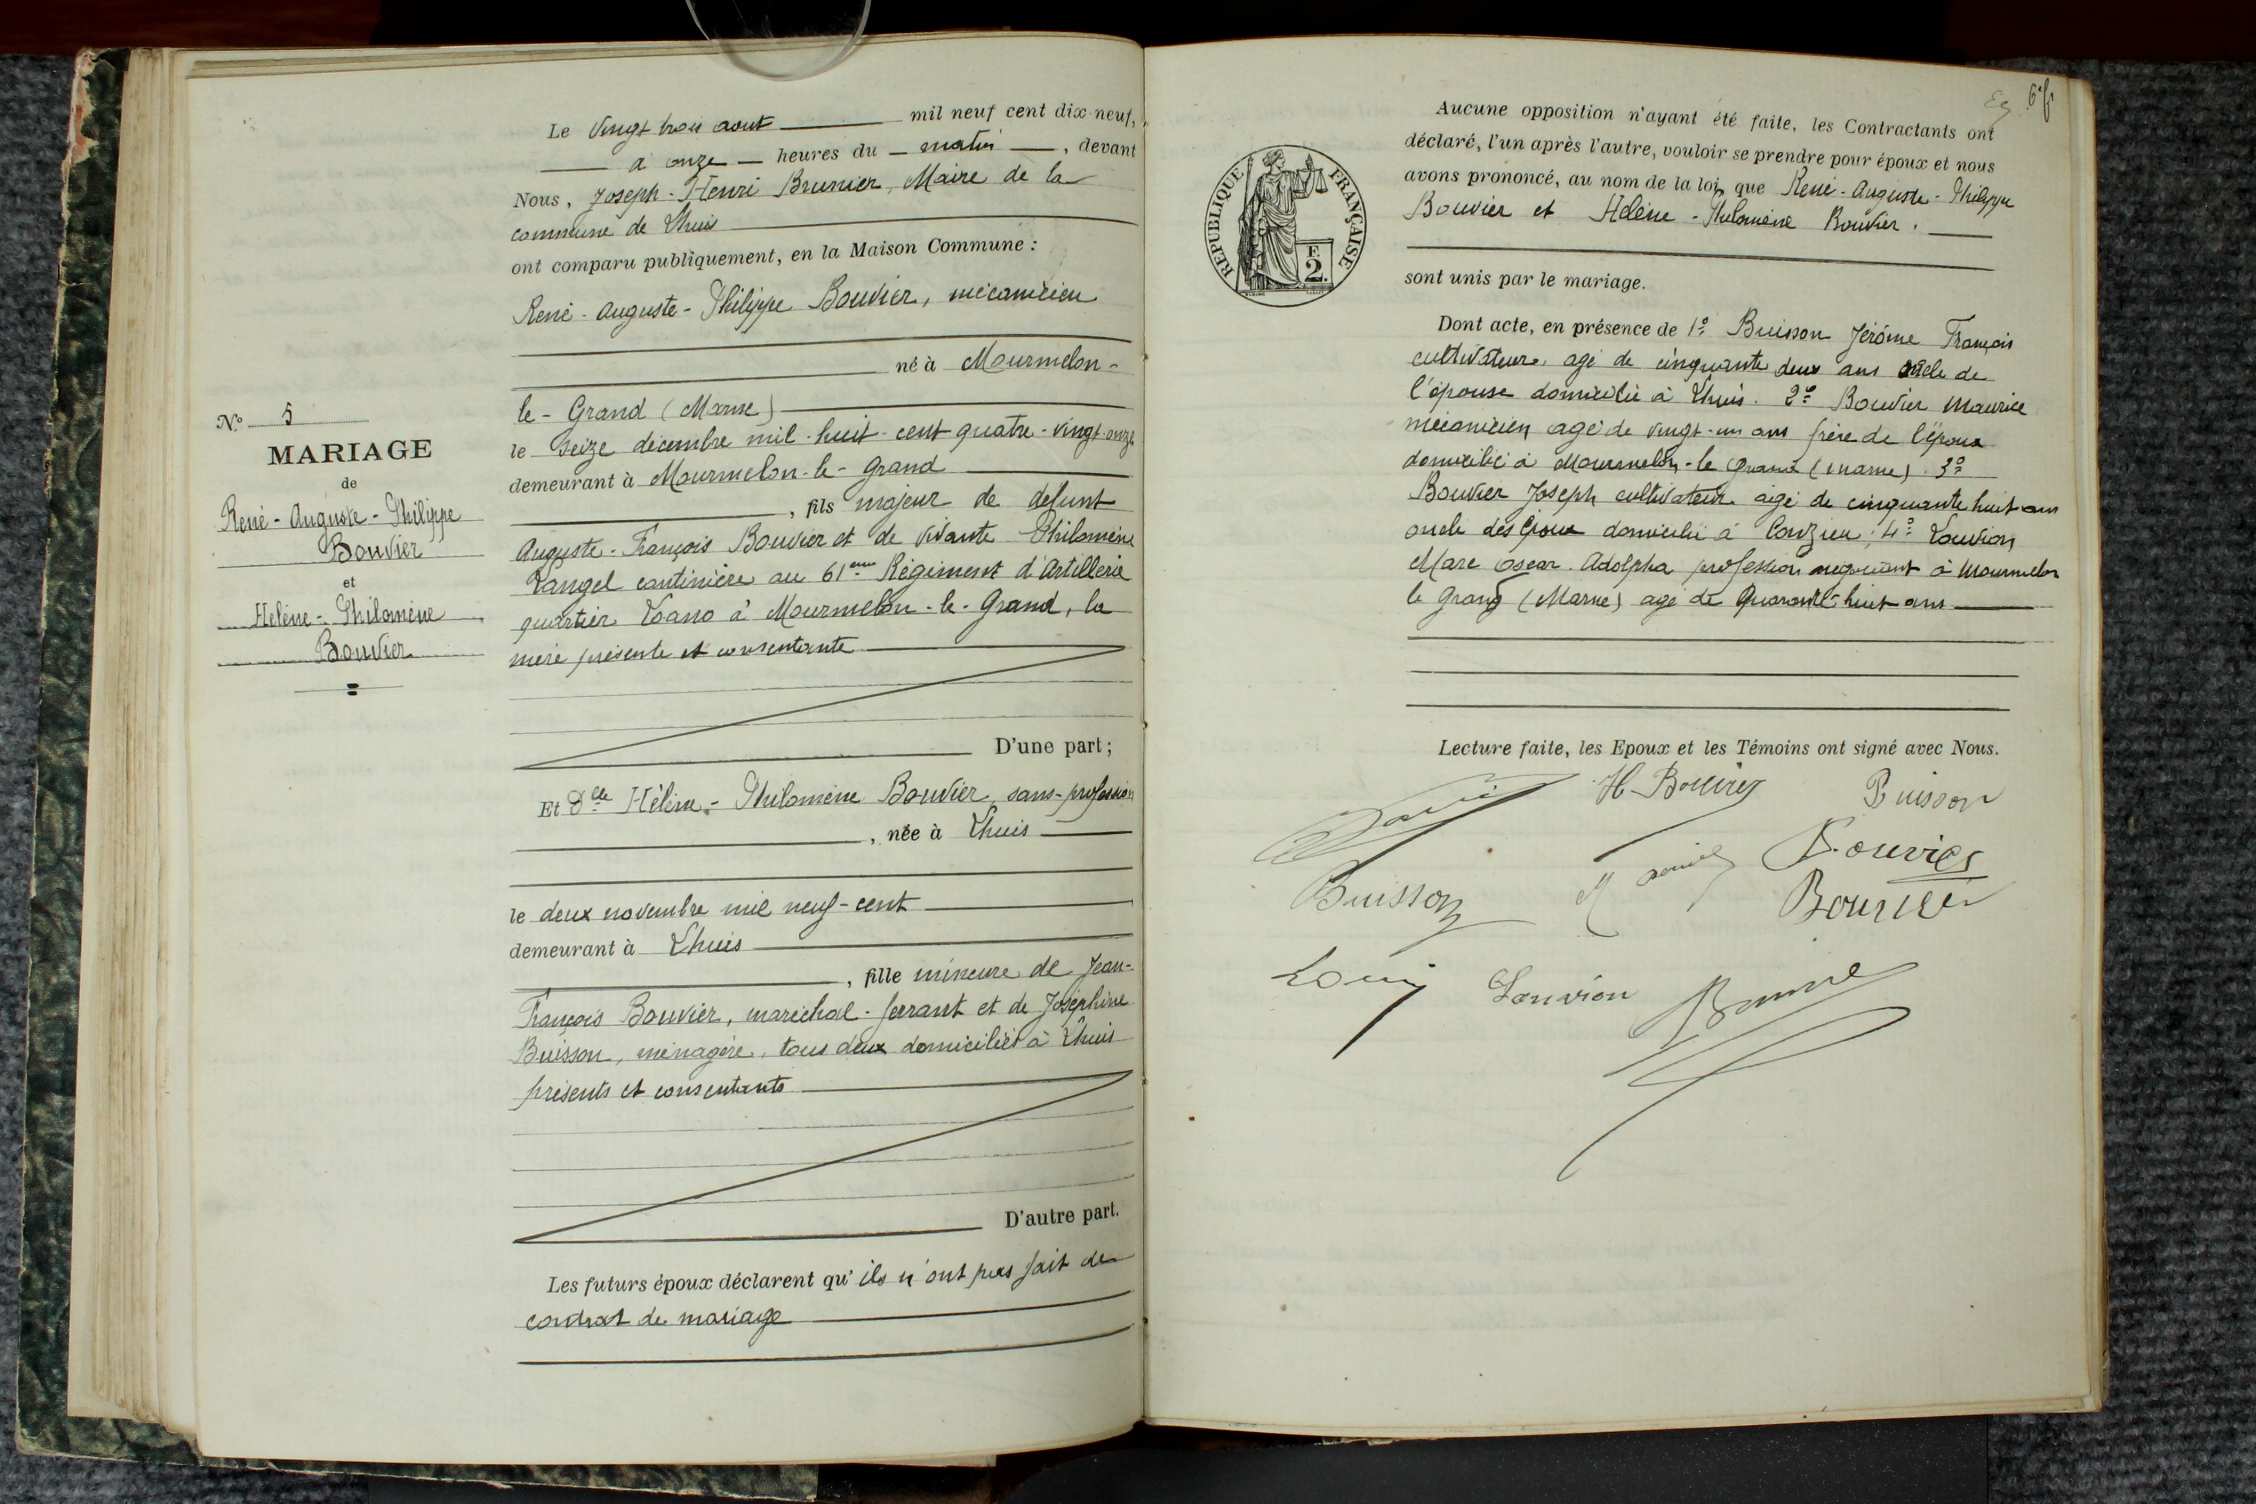 Le vingt trois aout mil neuf cent dix-neuf,
à onze heures du matin, devant
Nous, Joseph-Henri Brunier, Maire de la
commune de Lhuis
ont comparu publiquement, en la Maison Commune :
René-Auguste-Philippe Bouvier, mécanicien
né à Mourmelon-
le-Grand (Marne)
le seize décembre mil-huit-cent quatre-vingt-onze
demeurant à Mourmelon-le-Grand
, fils majeur de defunt
Auguste-François Bouvier et de vivante Philomène
Rangel cantinière au 61eme Régiment d'Artillerie
quartier Loano à Mourmelon-le-Grand, la
mère présente et consentante
D'une part ;
Et Dlle Hélène-Philomène Bouvier, sans-profession
, née à Lhuis
le deux novembre mil neuf-cent
demeurant à Lhuis
, fille mineure de Jean-
François Bouvier, maréchal-ferrant et de Joséphine
Buisson, ménagère, tous deux domiciliés à Lhuis
présents et consentants
D'autre part.
Les futurs époux déclarent qu'ils n'ont pas fait de
contrat de mariage
N° 5
MARIAGE
de
René-Auguste-Philippe
Bouvier
et
Hélène-Philomène
Bouvier
6
REPUBLIQUE FRANÇAISE
E
2.
Aucune opposition n'ayant été faite, les Contractants ont
déclaré, l'un après l'autre, vouloir se prendre pour époux et nous
avons prononcé, au nom de la loi, que René-Auguste-Philippe
Bouvier et Hélène-Philomène Bouvier.
sont unis par le mariage.
Dont acte, en présence de 1° Buisson Jérôme François
cultivateur, agé de cinquante deux ans oncle de
l'épouse domicilié à Lhuis. 2° Bouvier Maurice
mécanicien agé de vingt-un ans frère de l'époux
domicilié à Mourmelon-le Grand (Marne). 3°
Bouvier Joseph cultivateur agé de cinquante huit ans
oncle des époux domicilié à Conzieu ; 4° Louvion
Marc Oscar Adolpha profession négociant à Mourmelon
le Grand (Marne) agé de Quarante-huit ans
Lecture faite, les Epoux et les Témoins ont signé avec Nous.
H Bouvier
Buisson
Bouvier
Buisson
M Bouvier
Bouvier
Louvion